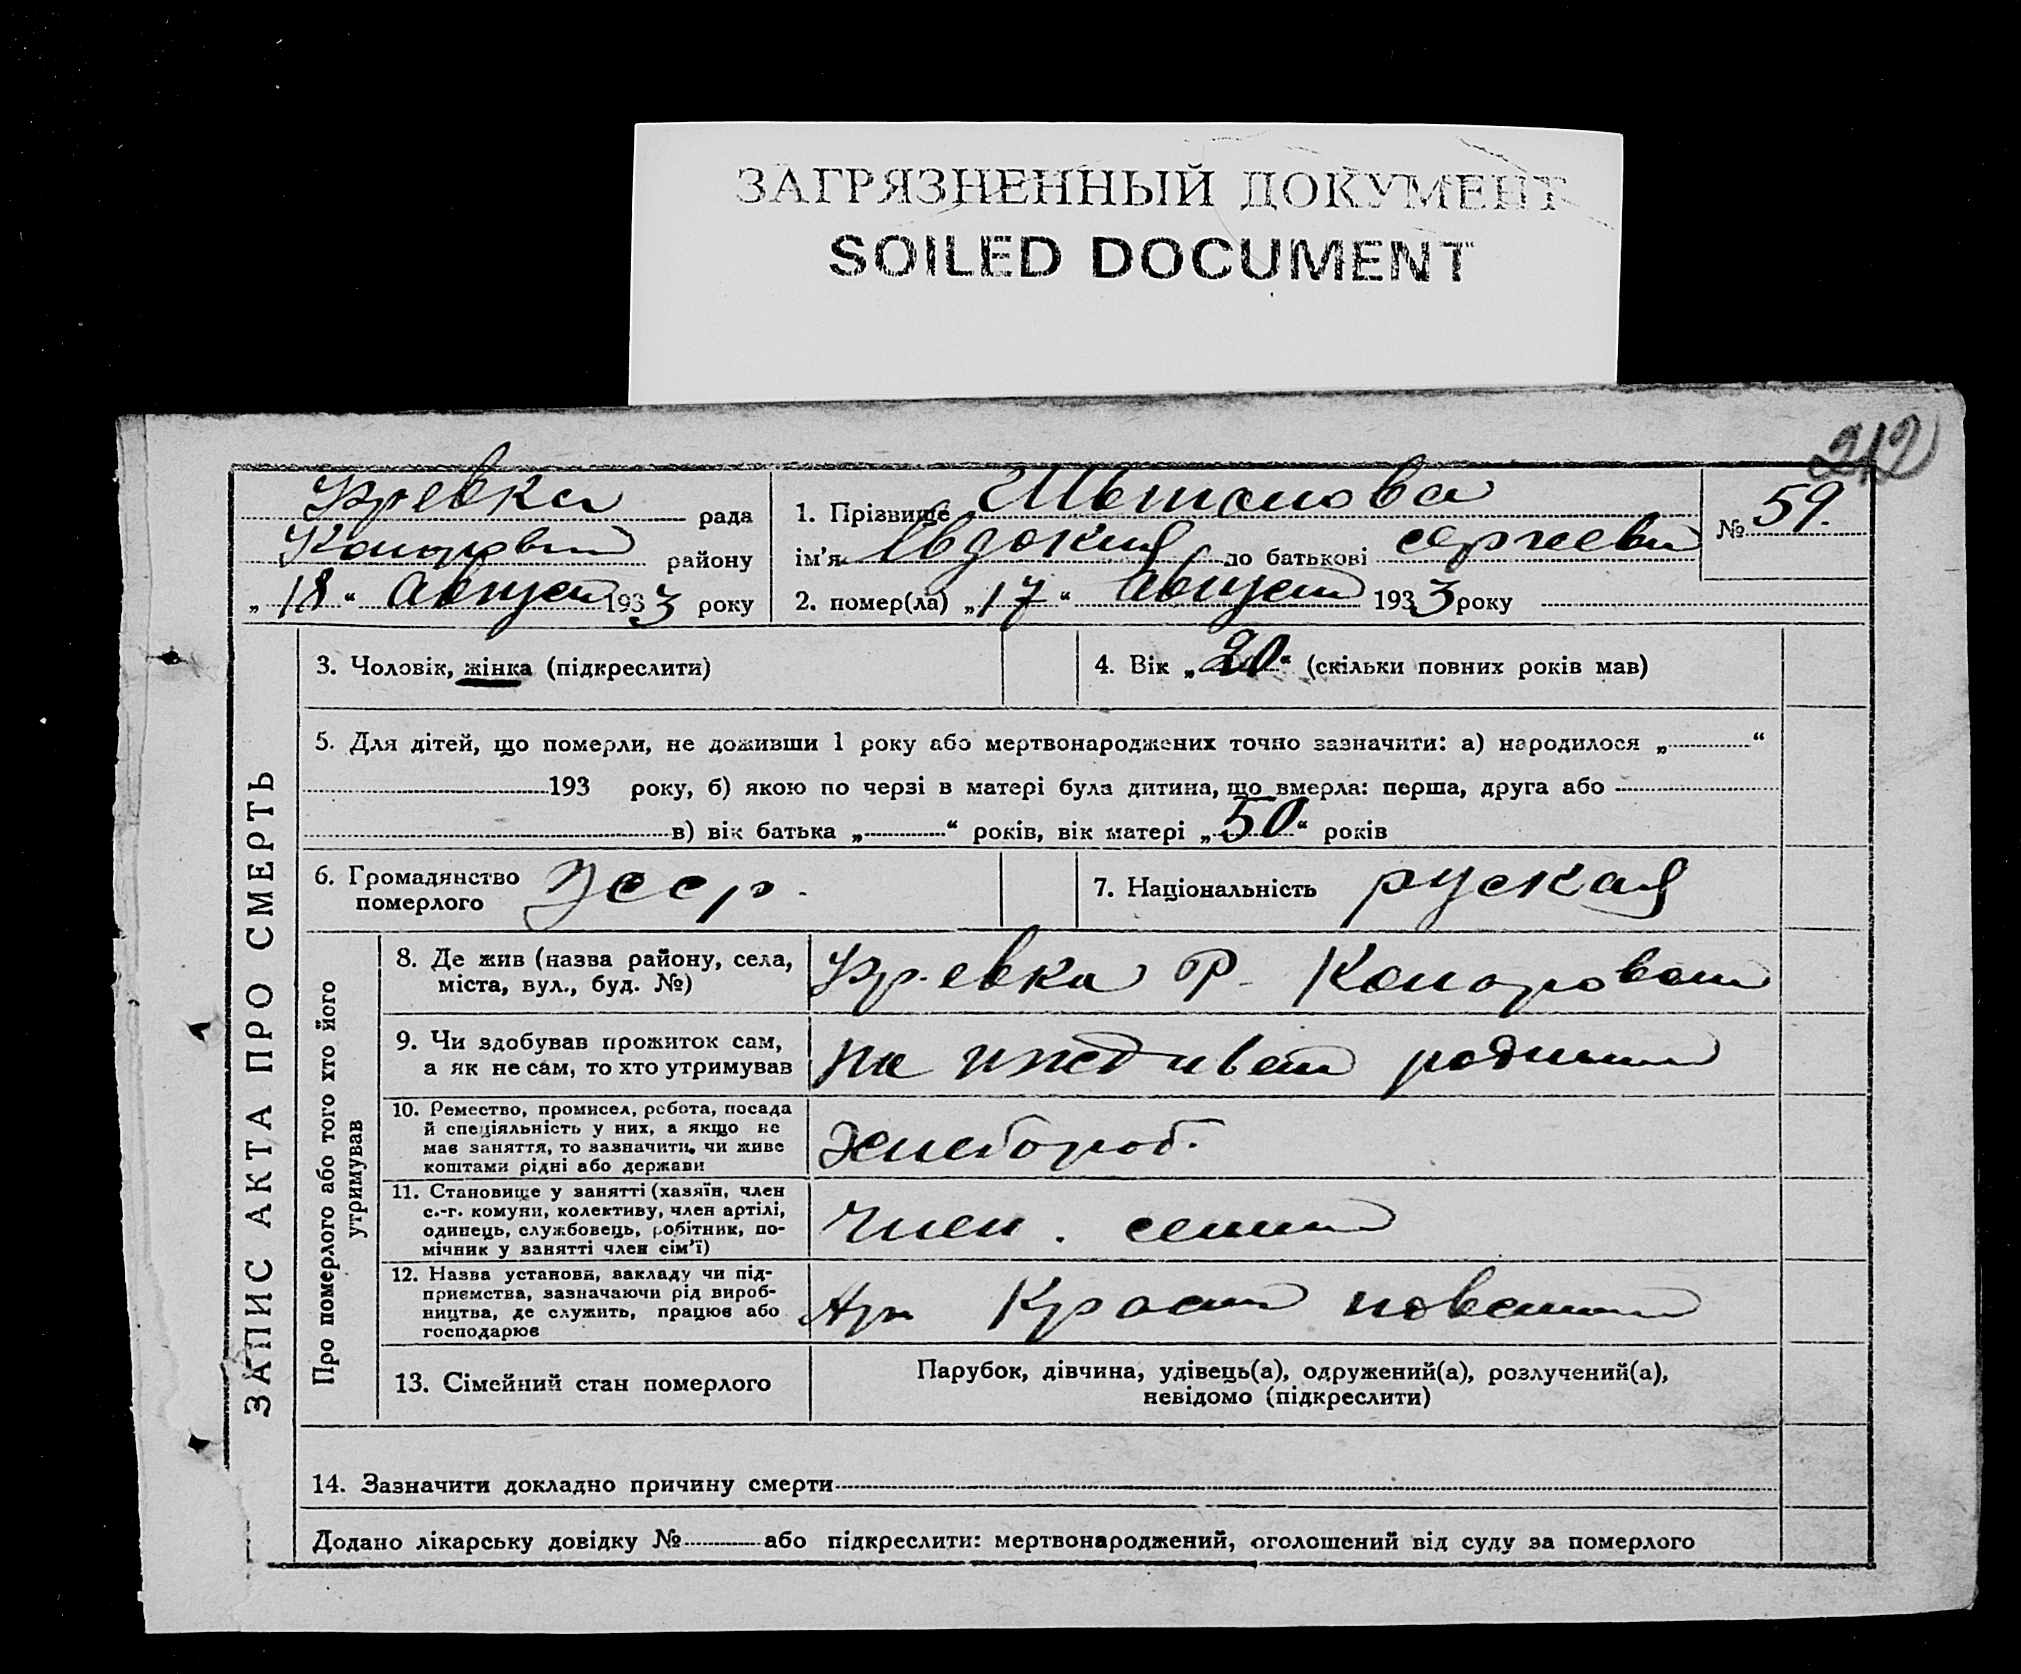 ЗАГРЯЗНЕННЫЙ ДОКУМЕНТ
SOILED DOCUMENT
212
рада
району
„18“ Август 1933 року
1. Прізвище
№ 59.
ім'я Явдокия по батькові
2. помер(ла) „17“ Август 1933 року
ЗАПИС АКТА ПРО СМЕРТЬ
3. Чоловік, жінка (підкреслити)
4. Вік „20“ (скільки повних років мав)
5. Для дітей, що померли, не доживши 1 року або мертвонароджених точно зазначити: а) народилося „ “
193 року, б) якою по черзі в матері була дитина, що вмерла: перша, друга або
в) вік батька „ “ років, вік матері „50“ років
6. Громадянство
померлого
Усср.
7. Національність руская
Про померлого або того хто його
утримував
8. Де жив (назва району, села,
міста, вул., буд. №)
Р.
9. Чи здобував прожиток сам,
а як не сам, то хто утримував
на
10. Ремество, промисел, робота, посада
й спеціяльність у них, а якщо не
має заняття, то зазначити, чи живе
коштами рідні або держави
Хлебороб.
11. Становище у занятті (хазяїн, член
с.-г. комуни, колективу, член артілі,
одинець, службовець, робітник, по-
мічник у занятті член сім'ї)
Член. семьи
12. Назва установи, закладу чи під-
приємства, зазначаючи рід вироб-
ництва, де служить, працює або
господарює
13. Сімейний стан померлого
Парубок, дівчина, удівець(а), одружений(а), розлучений(а),
невідомо (підкреслити)
14. Зазначити докладно причину смерти
Додано лікарську довідку № або підкреслити: мертвонароджений, оголошений від суду за померлого